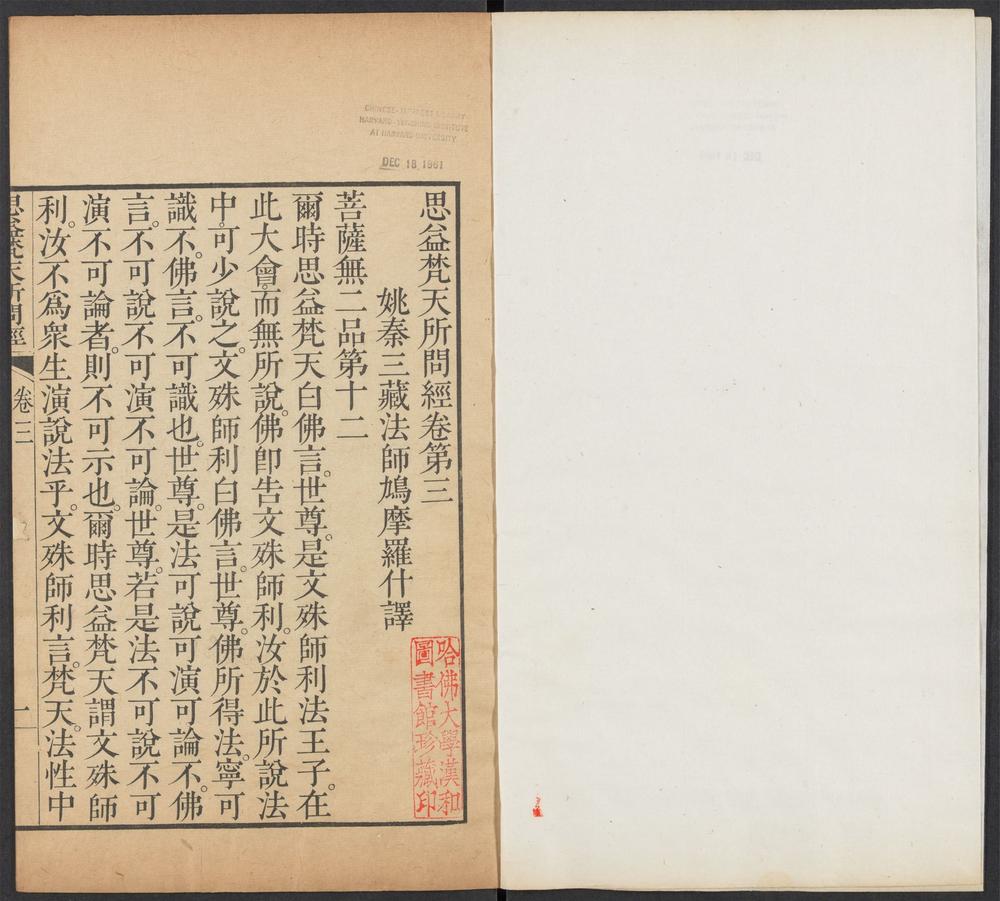 CHINESE-JAPANESE LIBRARY
HARVARD-YENCHING INSTITUTE
AT HARVARD UNIVERSITY
DEC 18 1961
思益梵天所問經卷第三
姚秦三藏法師鳩摩羅什譯
哈佛大學漢和
圖書館珍藏印
菩薩無二品第十二
爾時思益梵天白佛言。世尊。是文殊師利法王子。在
此大會。而無所說。佛卽告文殊師利。汝於此所說法
中。可少說之。文殊師利白佛言。世尊。佛所得法。寧可
識不。佛言。不可識也。世尊。是法可說可演可論不。佛
言。不可說不可演不可論。世尊。若是法不可說不可
演不可論者。則不可示也。爾時思益梵天謂文殊師
利。汝不爲衆生演說法乎。文殊師利言。梵天。法性中
思益梵天所問經 卷三 一